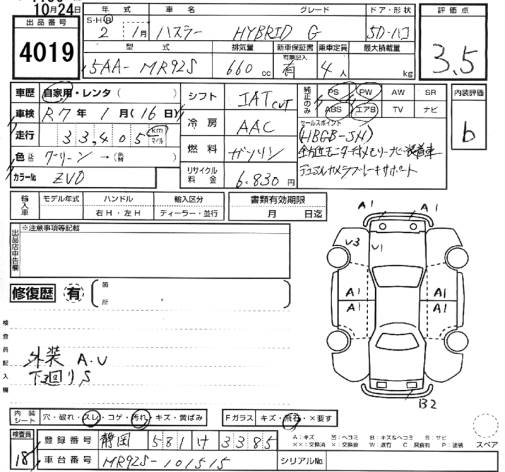 10月24日
出品番号
4019
年式 車名 グレード ドア・形状
S・H・R 2年 1月 ハスラー HYBRID G 5D・ハコ
型式 排気量 新車保証書 乗車定員 最大積載量
5AA-MR92S 660cc 有 4人 kg
評価点
3.5
車歴 自家用・レンタ( )
車検 R7年1月(16日)
走行 33,405 km マイル
色 グリーン→(替)
カラーNo. ZVD
シフト IAT CVT
冷房 AAC
燃料 ガソリン
リサイクル料金 6,830円
純正のみ PS PW AW SR
ABS エアB TV ナビ
セールスポイント
(HBGB-SH)
全方位モニター付メモリーナビ装着車
デュアルカメラブレーキサポート
内装評価
b
輸入車 モデル年式 ハンドル 輸入区分
年 右H・左H ディーラー・並行
書類有効期限
月 日迄
出品店申告欄
※注意事項等記載
修復歴 有 箇所
検査員記入欄
外装 A.U
下廻りS
A1 A1
V3 U1
A1 A1
A1 A1
B2
内装シート 穴・破れ・スレ・コゲ・汚れ・キズ・黄ばみ
Fガラス キズ・飛石・×要す
検査員
18
登録番号 静岡 581 け 3385
車台番号 MR92S-101515
シリアルNo.
A:キズ U:ヘコミ B:キズ&ヘコミ W:波打 S:サビ
××:交換済 ×:要交換 C:腐食 P:塗装
スペア